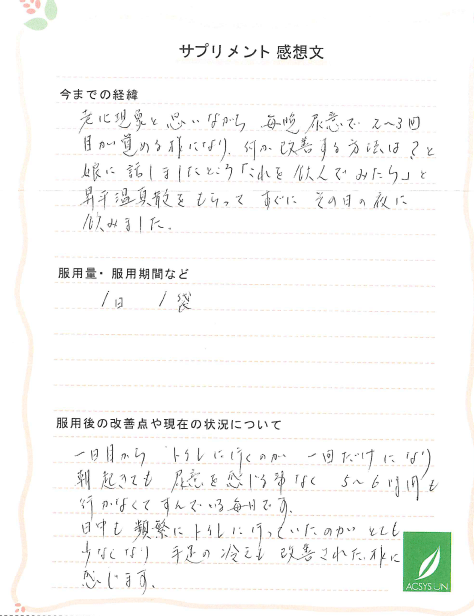 サプリメント 感想文
今までの経緯
老化現象と思いながら 毎晩 尿意で 2〜3回
目が覚める様になり、何か改善する方法は？と
娘に話しましたところ「これを飲んでみたら」と
昇平温真散をもらって すぐに その日の夜に
飲みました。
服用量・服用期間など
1日 1袋
服用後の改善点や現在の状況について
一日目から トイレに行くのが 一回だけになり
朝起きても 尿意を感じる事なく 5〜6時間も
行かなくてすんでいる毎日です。
日中も 頻繁にトイレに行っていたのが とても
少なくなり 手足の冷えも 改善された様に
感じます。
ACSYS JIN